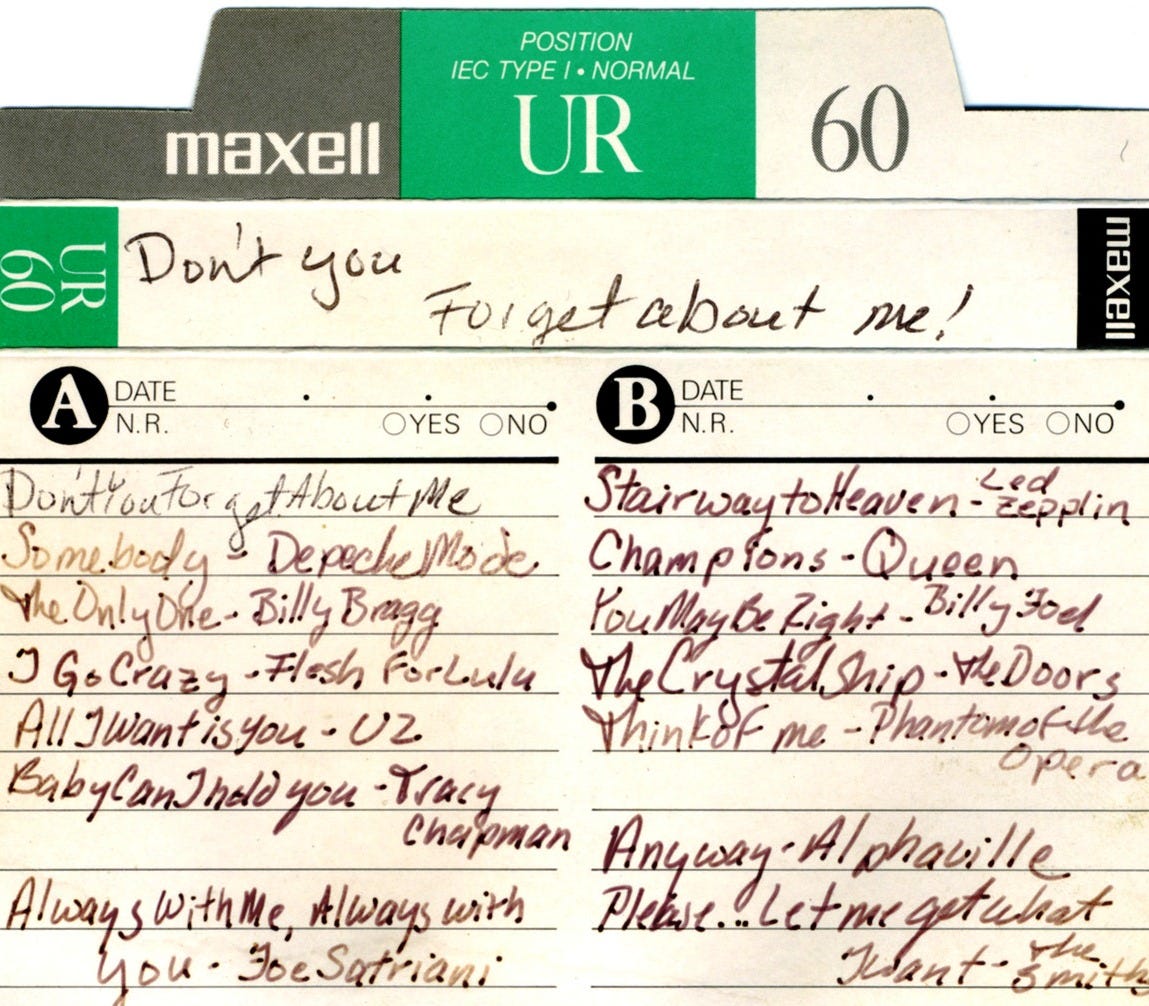 POSITION
IEC TYPE I • NORMAL
maxell UR 60
UR 60
Don't you
Forget about me!
maxell
A DATE
N.R. YES NO
Don't You Forget About Me
Somebody - Depeche Mode
The Only One - Billy Bragg
I Go Crazy - Flesh For Lulu
All I Want is you - U2
Baby Can I hold you - Tracy
Chapman
Always With Me, Always with
you - Joe Satriani
B DATE
N.R. YES NO
Stairway to Heaven - Led
Zepplin
Champions - Queen
You May Be Right - Billy Joel
The Crystal Ship - The Doors
Think of me - Phantom of the
Opera
Anyway - Alphaville
Please... Let me get what
I want - The
Smiths